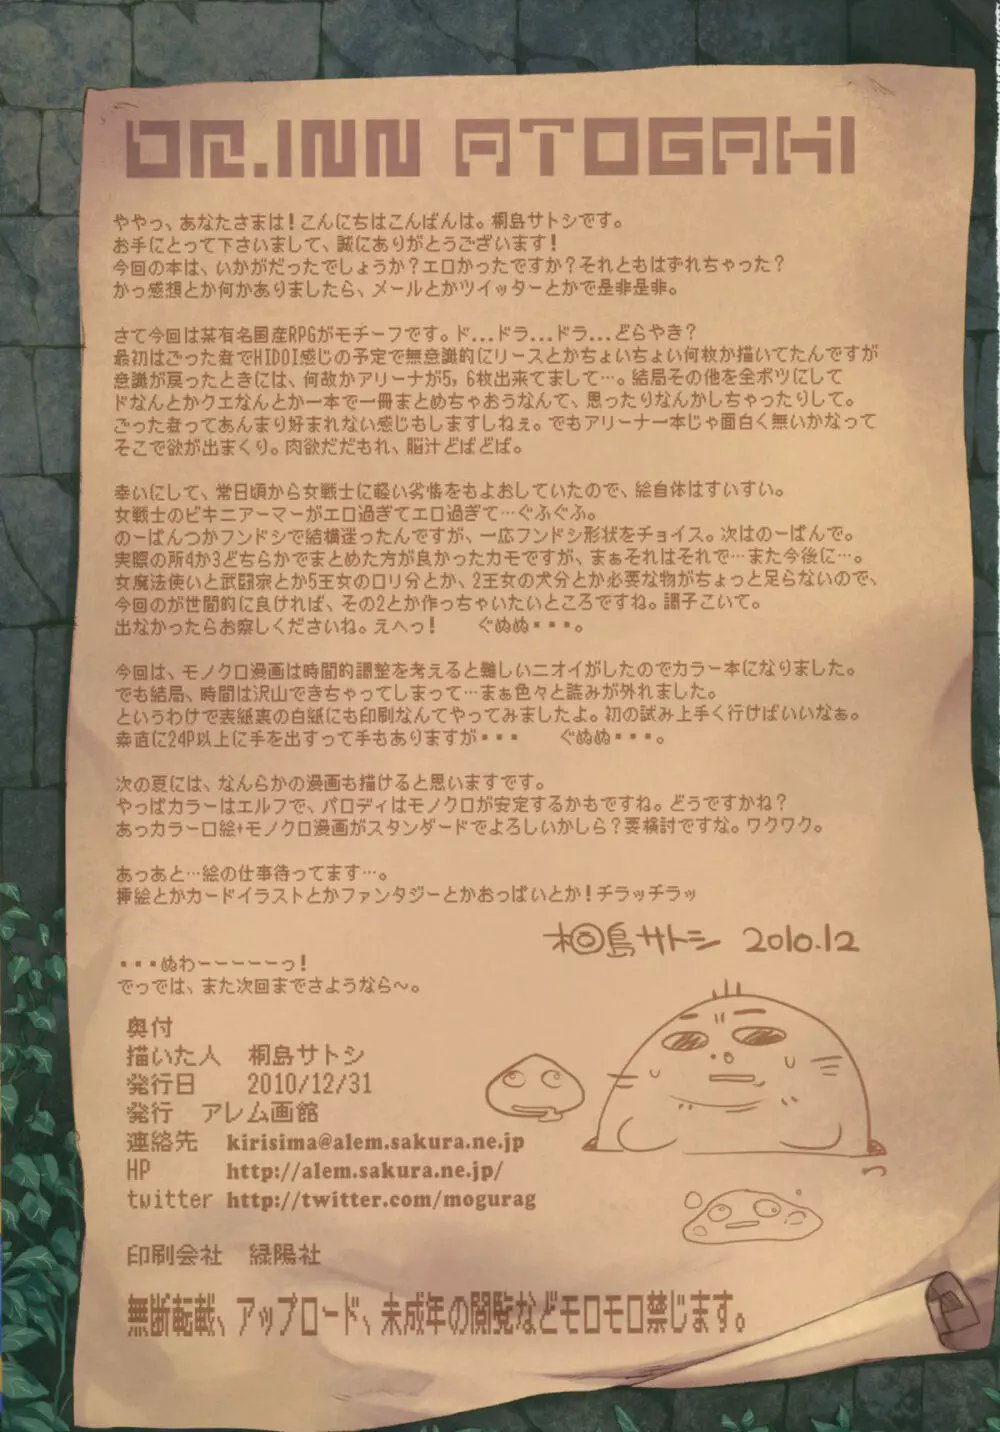 DR.INN ATOGAKI
ややっ、あなたさまは！こんにちはこんばんは。桐島サトシです。
お手にとって下さいまして、誠にありがとうございます！
今回の本は、いかがだったでしょうか？エロかったですか？それともはずれちゃった？
かっ感想とか何かありましたら、メールとかツイッターとかで是非是非。
さて今回は某有名国産RPGがモチーフです。ド...ドラ...ドラ...どらやき？
最初はごった煮でHIDOI感じの予定で無意識的にリースとかちょいちょい何枚か描いてたんですが
意識が戻ったときには、何故かアリーナが5，6枚出来てまして…。結局その他を全ボツにして
ドなんとかクエなんとか一本で一冊まとめちゃおうなんて、思ったりなんかしちゃったりして。
ごった煮ってあんまり好まれない感じもしますしねぇ。でもアリーナ一本じゃ面白く無いかなって
そこで欲が出まくり。肉欲だだもれ、脳汁どばどば。
幸いにして、常日頃から女戦士に軽い劣情をもよおしていたので、絵自体はすいすい。
女戦士のビキニアーマーがエロ過ぎてエロ過ぎて…ぐふぐふ。
のーぱんつかフンドシで結構迷ったんですが、一応フンドシ形状をチョイス。次はのーぱんで。
実際の所4か3どちらかでまとめた方が良かったカモですが、まぁそれはそれで…また今後に…。
女魔法使いと武闘家とか5王女のロリ分とか、2王女の犬分とか必要な物がちょっと足らないので、
今回のが世間的に良ければ、その2とか作っちゃいたいところですね。調子こいて。
出なかったらお察しくださいね。えへっ！　　ぐぬぬ・・・。
今回は、モノクロ漫画は時間的調整を考えると難しいニオイがしたのでカラー本になりました。
でも結局、時間は沢山できちゃってしまって…まぁ色々と読みが外れました。
というわけで表紙裏の白紙にも印刷なんてやってみましたよ。初の試み上手く行けばいいなぁ。
素直に24P以上に手を出すって手もありますが・・・　　ぐぬぬ・・・。
次の夏には、なんらかの漫画も描けると思いますです。
やっぱカラーはエルフで、パロディはモノクロが安定するかもですね。どうですかね？
あっカラー口絵+モノクロ漫画がスタンダードでよろしいかしら？要検討ですな。ワクワク。
あっあと…絵の仕事待ってます…。
挿絵とかカードイラストとかファンタジーとかおっぱいとか！チラッチラッ
桐島サトシ 2010.12
・・・ぬわーーーーーっ！
でっでは、また次回までさようなら～。
奥付
描いた人　桐島サトシ
発行日　2010/12/31
発行　アレム画館
連絡先　kirisima@alem.sakura.ne.jp
HP　http://alem.sakura.ne.jp/
twitter http://twitter.com/mogurag
印刷会社　緑陽社
無断転載、アップロード、未成年の閲覧などモロモロ禁じます。